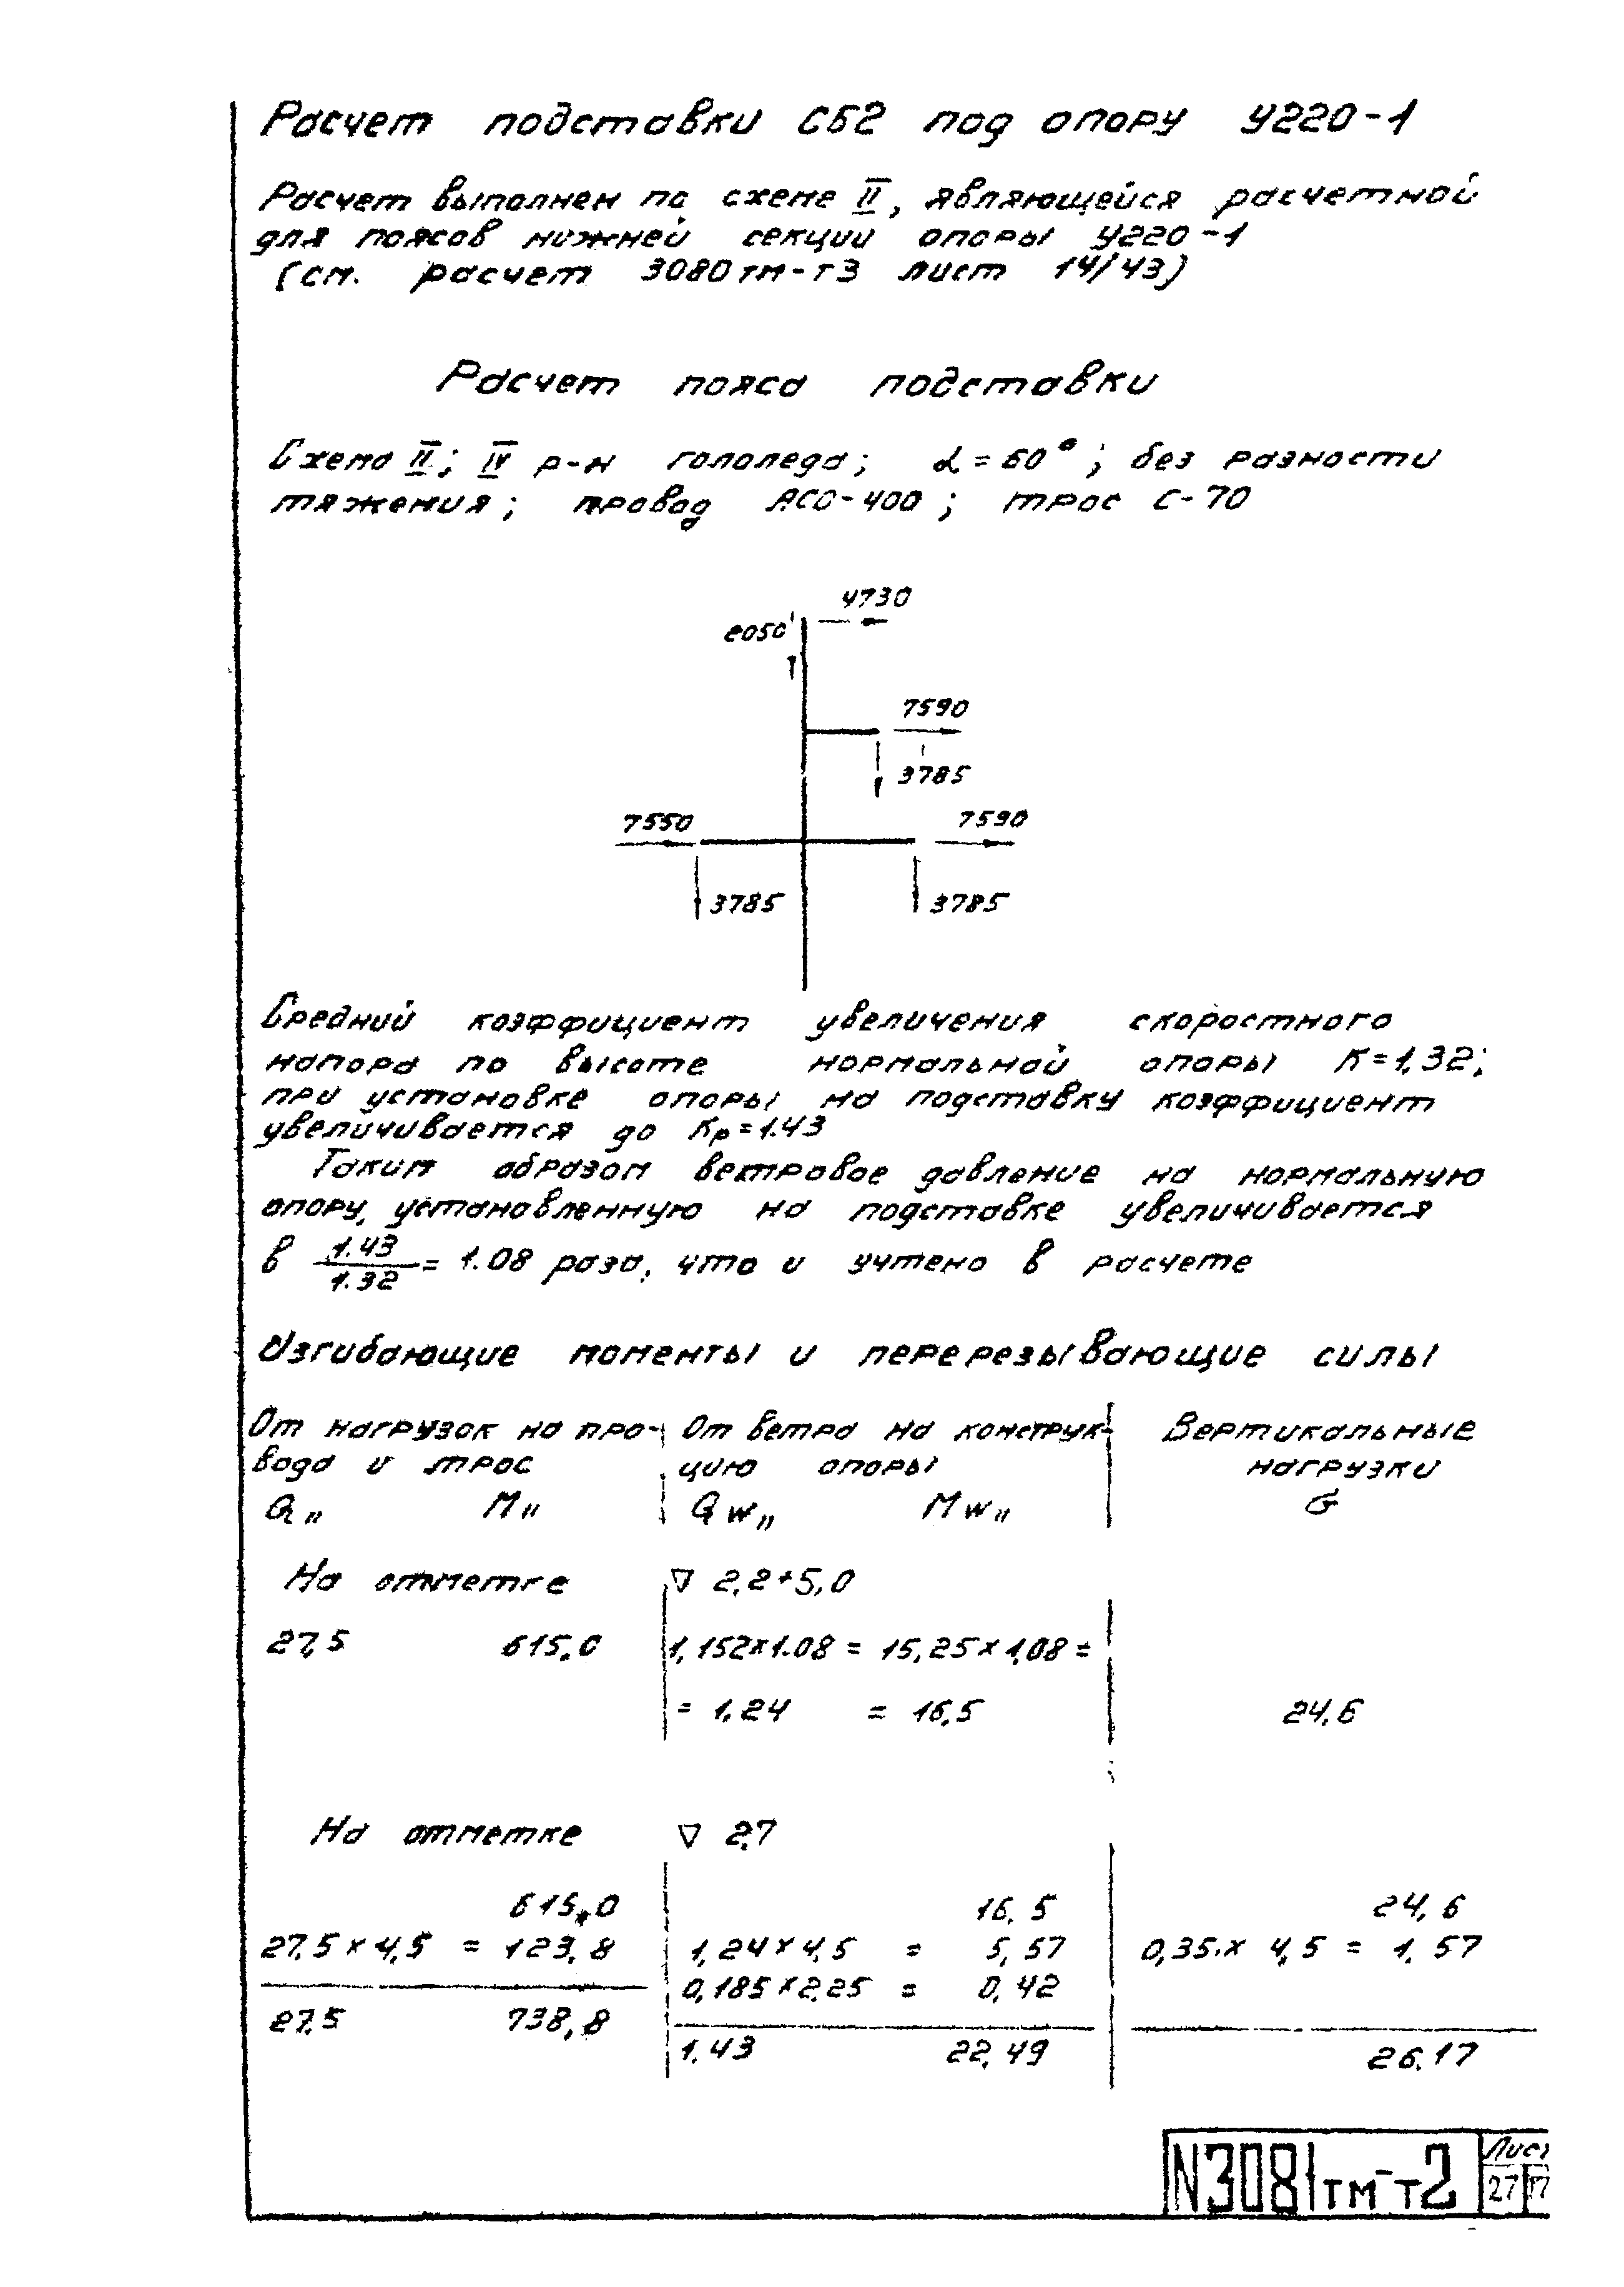 Расчет подставки СБ2 под опору У220-1
Расчет выполнен по схеме II, являющейся расчетной
для поясов нижней секции опоры У220-1
(см. расчет 3080тм-т3 лист 14/43)
Расчет пояса подставки
Схема II; IV р-н гололеда; α=60°; без разности
тяжения; провод АСО-400; трос С-70
4730
2050
7590
3785
7550
7590
3785
3785
Средний коэффициент увеличения скоростного
напора по высоте нормальной опоры К=1,32;
при установке опоры на подставку коэффициент
увеличивается до Кр=1.43
Таким образом ветровое давление на нормальную
опору, установленную на подставке увеличивается
в 1.43/1.32 = 1.08 раза, что и учтено в расчете
Изгибающие моменты и перерезывающие силы
От нагрузок на про- От ветра на конструк- Вертикальные
вода и трос цию опоры нагрузки
Q" M" Qw" Mw" G
На отметке ▽ 2,2+5,0
27,5 615,0 1,152x1.08 = 15,25x1,08 =
= 1.24 = 16,5 24,6
На отметке ▽ 2,7
615,0 16,5 24,6
27,5x4,5 = 123,8 1,24x4,5 = 5,57 0,35x4,5 = 1,57
0,185x2,25 = 0,42
27,5 738,8 1,43 22,49 26.17
N3081тм-т2
Лист
27